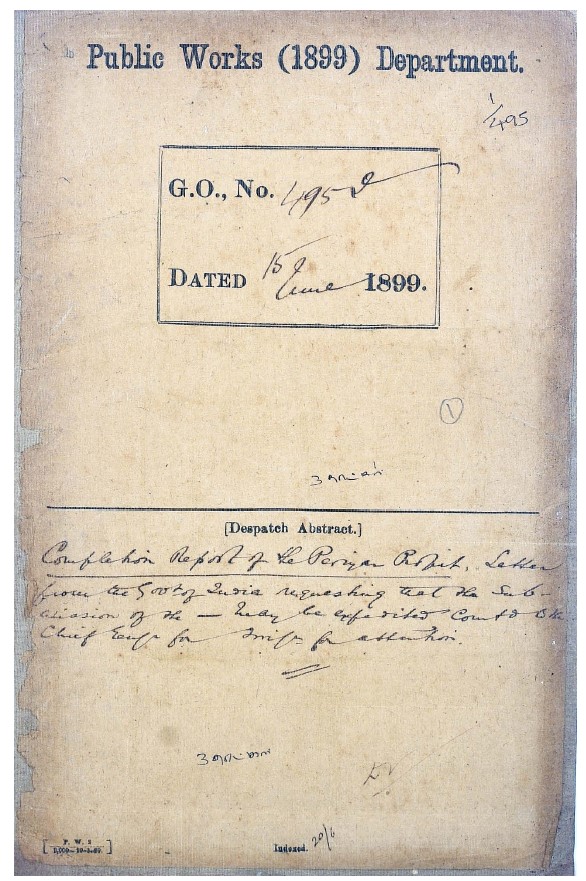 Public Works (1899) Department.
1/495
G.O., No. 495 I
DATED 15 June 1899.
1
[Despatch Abstract.]
Completion Report of the Periyar Projt. Letter
from the Govt of India requesting that the Sub-
mission of the — may be expedited Comtd to the
Chief Engr for Irrign for attention.
P. W. 2
Indexed. 20/6